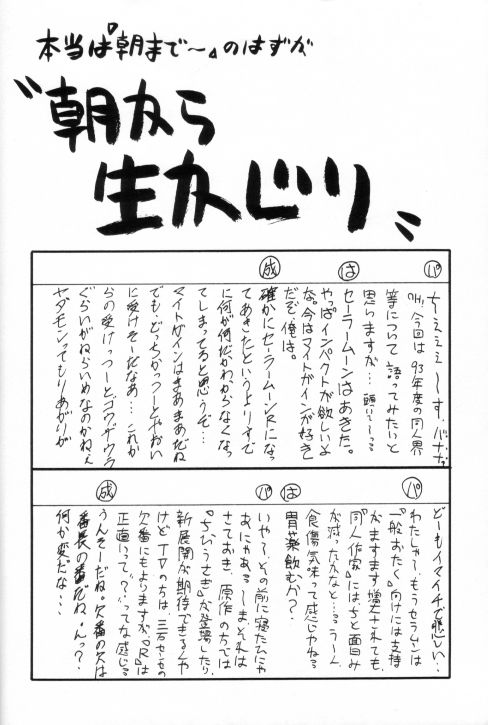 本当は『朝まで〜』のはずが
〝朝から
生かじり〟
パ
ちぇぇぇ〜す。バナナ
『H』今回は93年度の同人界
等について語ってみたいと
思いますが…
は
セーラームーンはあきた。
やっぱインパクトが欲しいよ
な。今はマイトガインが好き
だぞ、俺は。
成
確かにセーラームーンRになっ
てあきたというよりすで
に何が何だかわからなくなっ
てしまってると思うぞ…
マイトガインはまあまあだね
でも、どっちかっつーとやおい
に受けそーだなあ…これか
らの受けっつーとゴウザウラ
ぐらいがねらいめなのかねぇ
ヤダモンってもりあがりが
パ
どーもイマイチで悲しい…
わたしゃ〜、もうセラムンは
『一般おたく』向けには支持
がますます増大されても、
『同人作家』にはちと面白み
が減ったかなと…う〜ん
食傷気味って感じやねる
は
胃薬飲むか？
パ
いや〜、その前に寝たひにゃ
あにゃある。しまそれは
さておき、原作の方では
『ちびうさぎ』が登場したり、
新展開が期待できるんや
けどTVのちは、三石セーラーの
欠番にもよりますが、『R』は
正直いって"？"ってな感じる
成
うんそーだね。欠番の欠は
番長の番だね。んっ？
何か変だな…